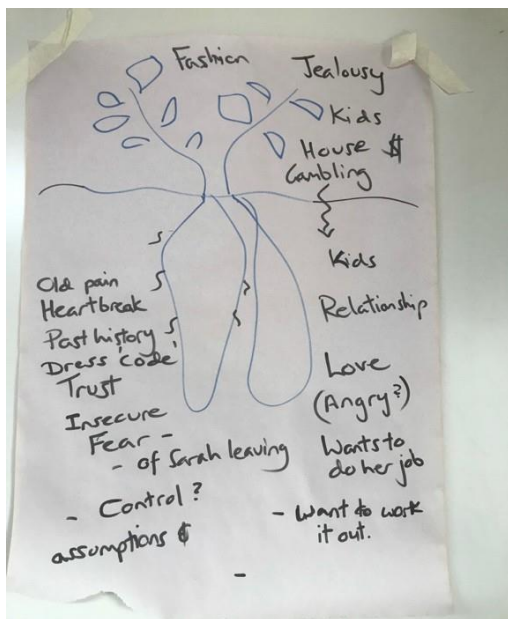 Fashion
Jealousy
Kids
House $
Gambling
Kids
Relationship
Love
(Angry?)
Wants to
do her job
- Want to work
it out.
Old pain
Heartbreak
Past history
Dress 'code'
Trust
Insecure
Fear -
- of Sarah leaving
- Control?
assumptions $
-